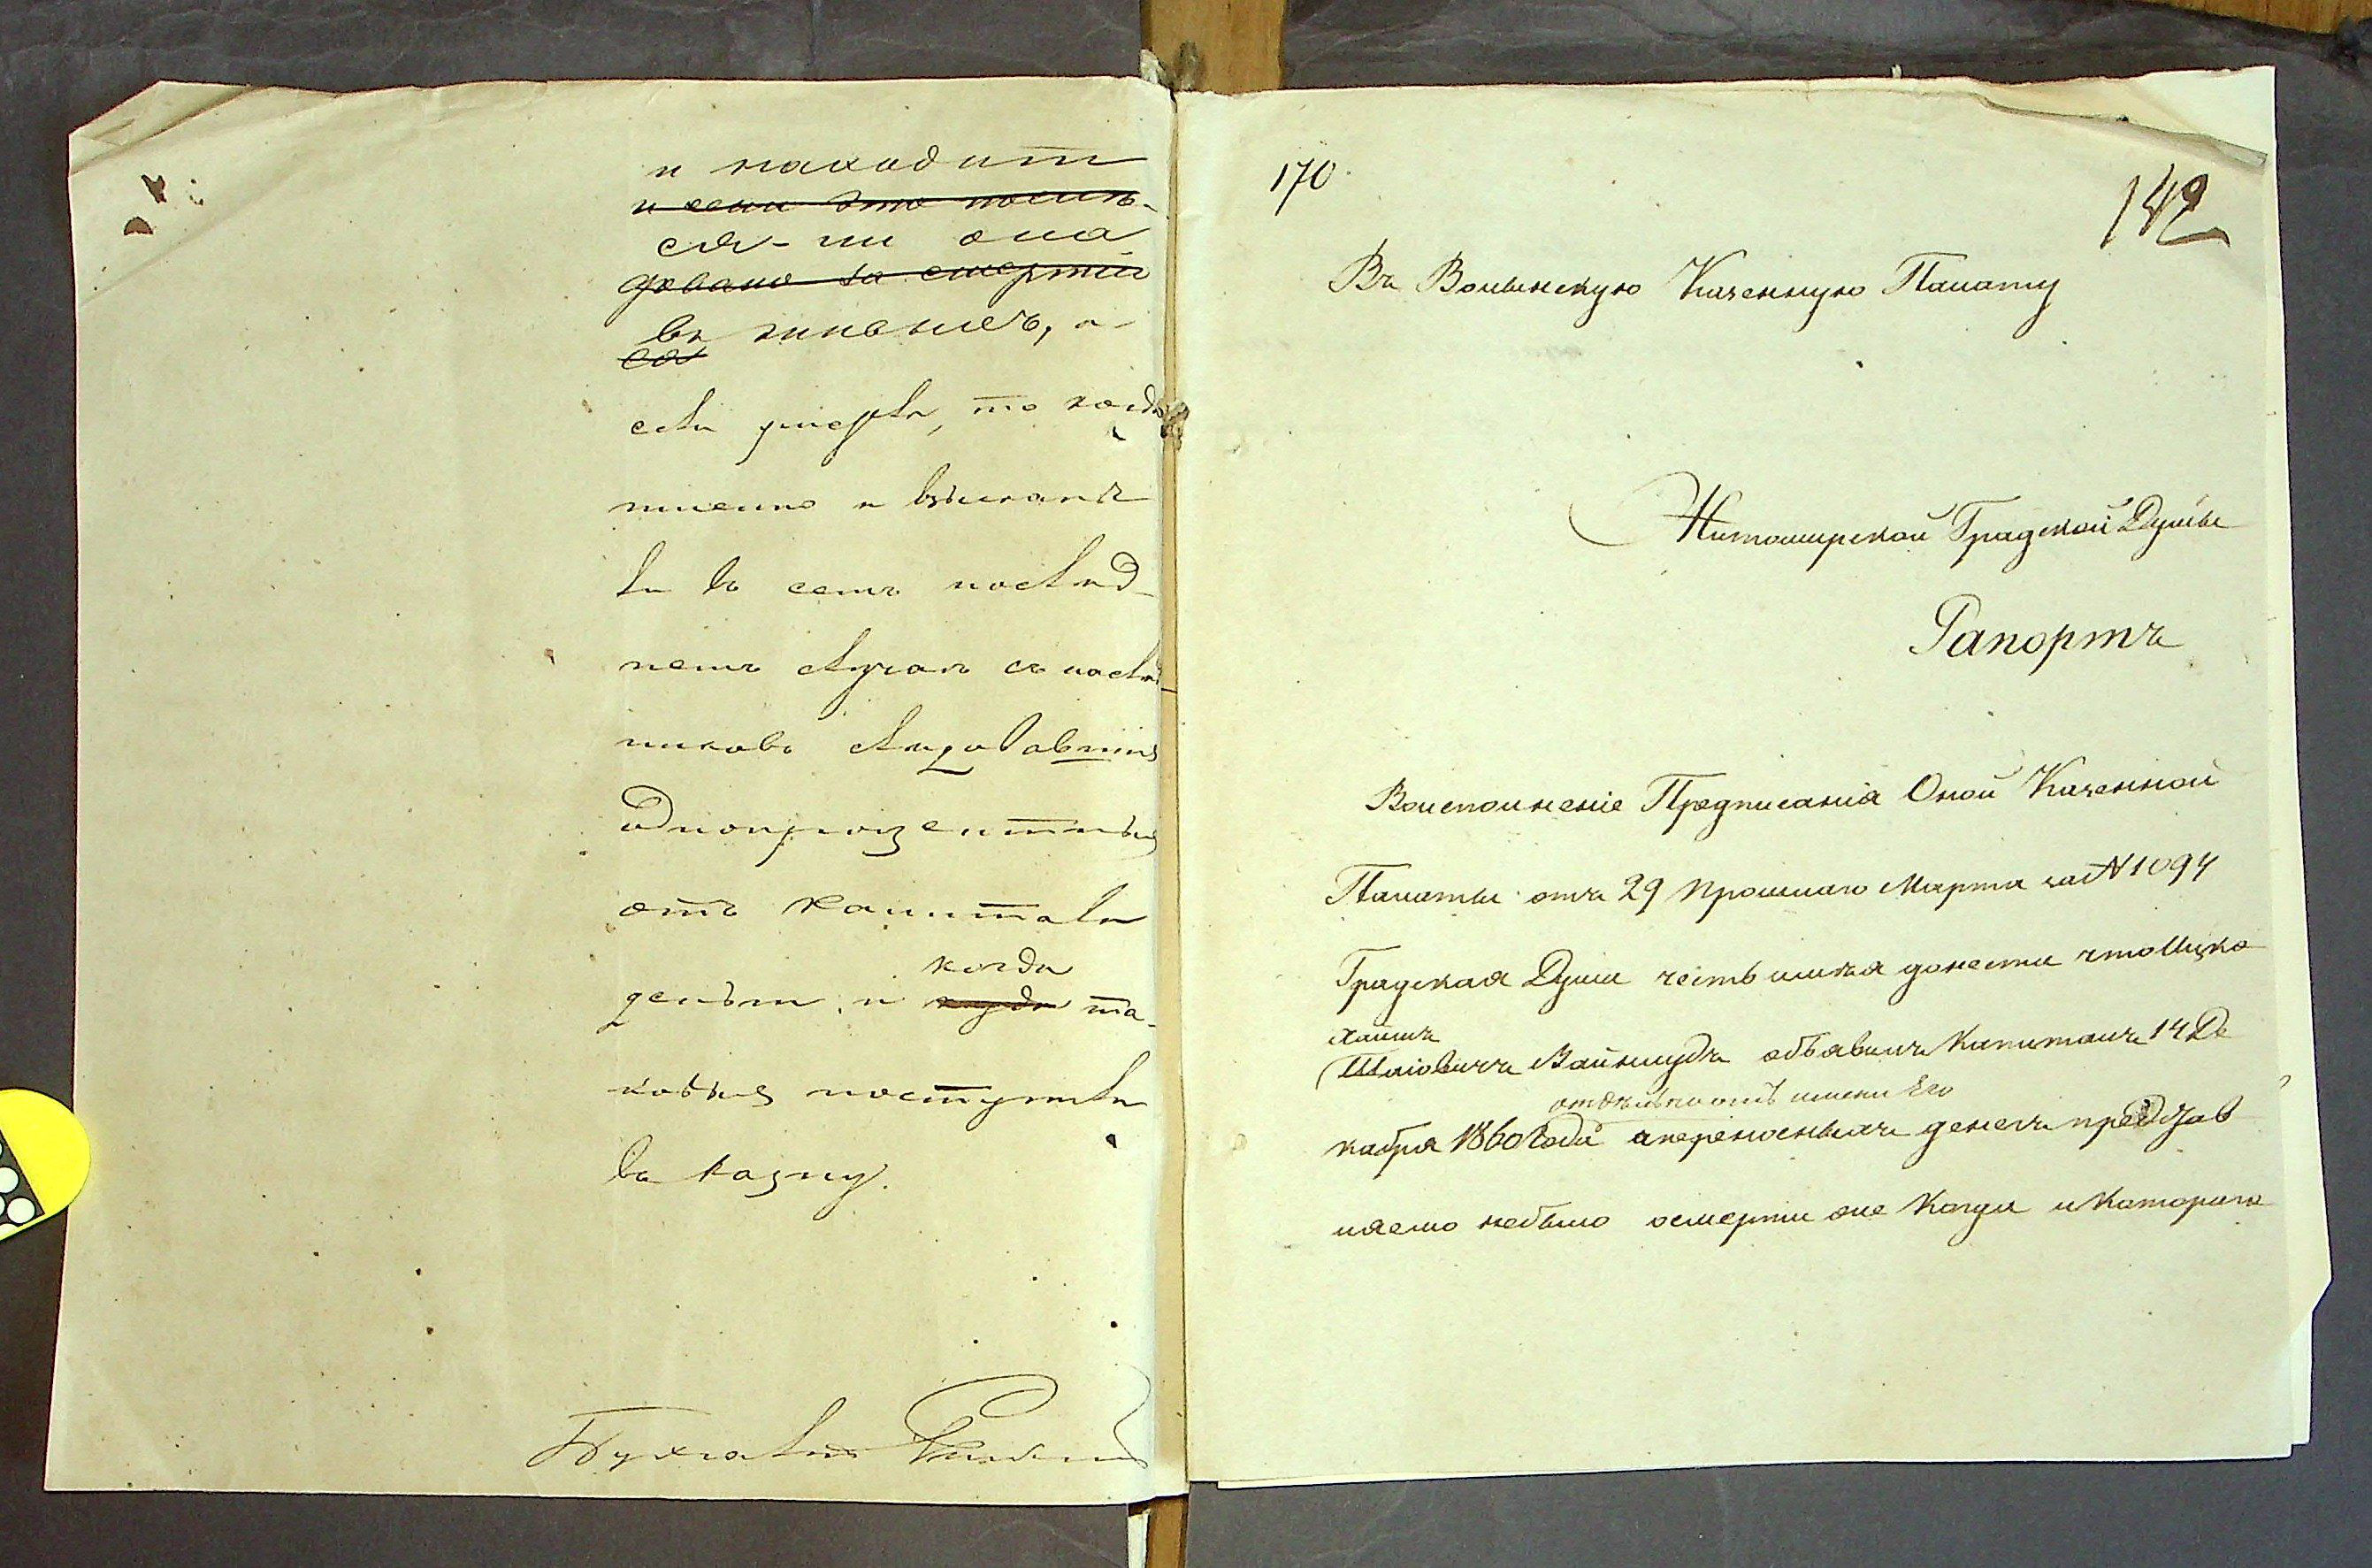 и находит
~~и если это послѣ-~~
ся-ли она
~~довало за смертію~~
въ живыхъ, а
~~ея~~
если умерла, то когда
именно и взысканы
ли въ семъ послѣд-
немъ случаѣ съ наслѣд-
никовъ слѣдовавшія
однопроцентныя
отъ капитала
когда
деньги и ~~куда~~ та-
ковыя поступили
въ казну.
Бухгалтеръ
170.
142
Въ Волынскую Казенную Палату
Житомирской Градской Думы
Рапортъ
Воисполненіе Предписанія Оной Казенной
Палаты отъ 29 прошлаго Марта за № 1094
Градская Дума честь имѣя донести что Ицко
Хаимъ
Шліовичъ Вайншудъ объявилъ Капиталъ 14 Де
отзывъ отъ имени Его
кабря 1860 Года апереносныхъ денегъ представ
ляемо небыло осмерти оне Когда и Котораго